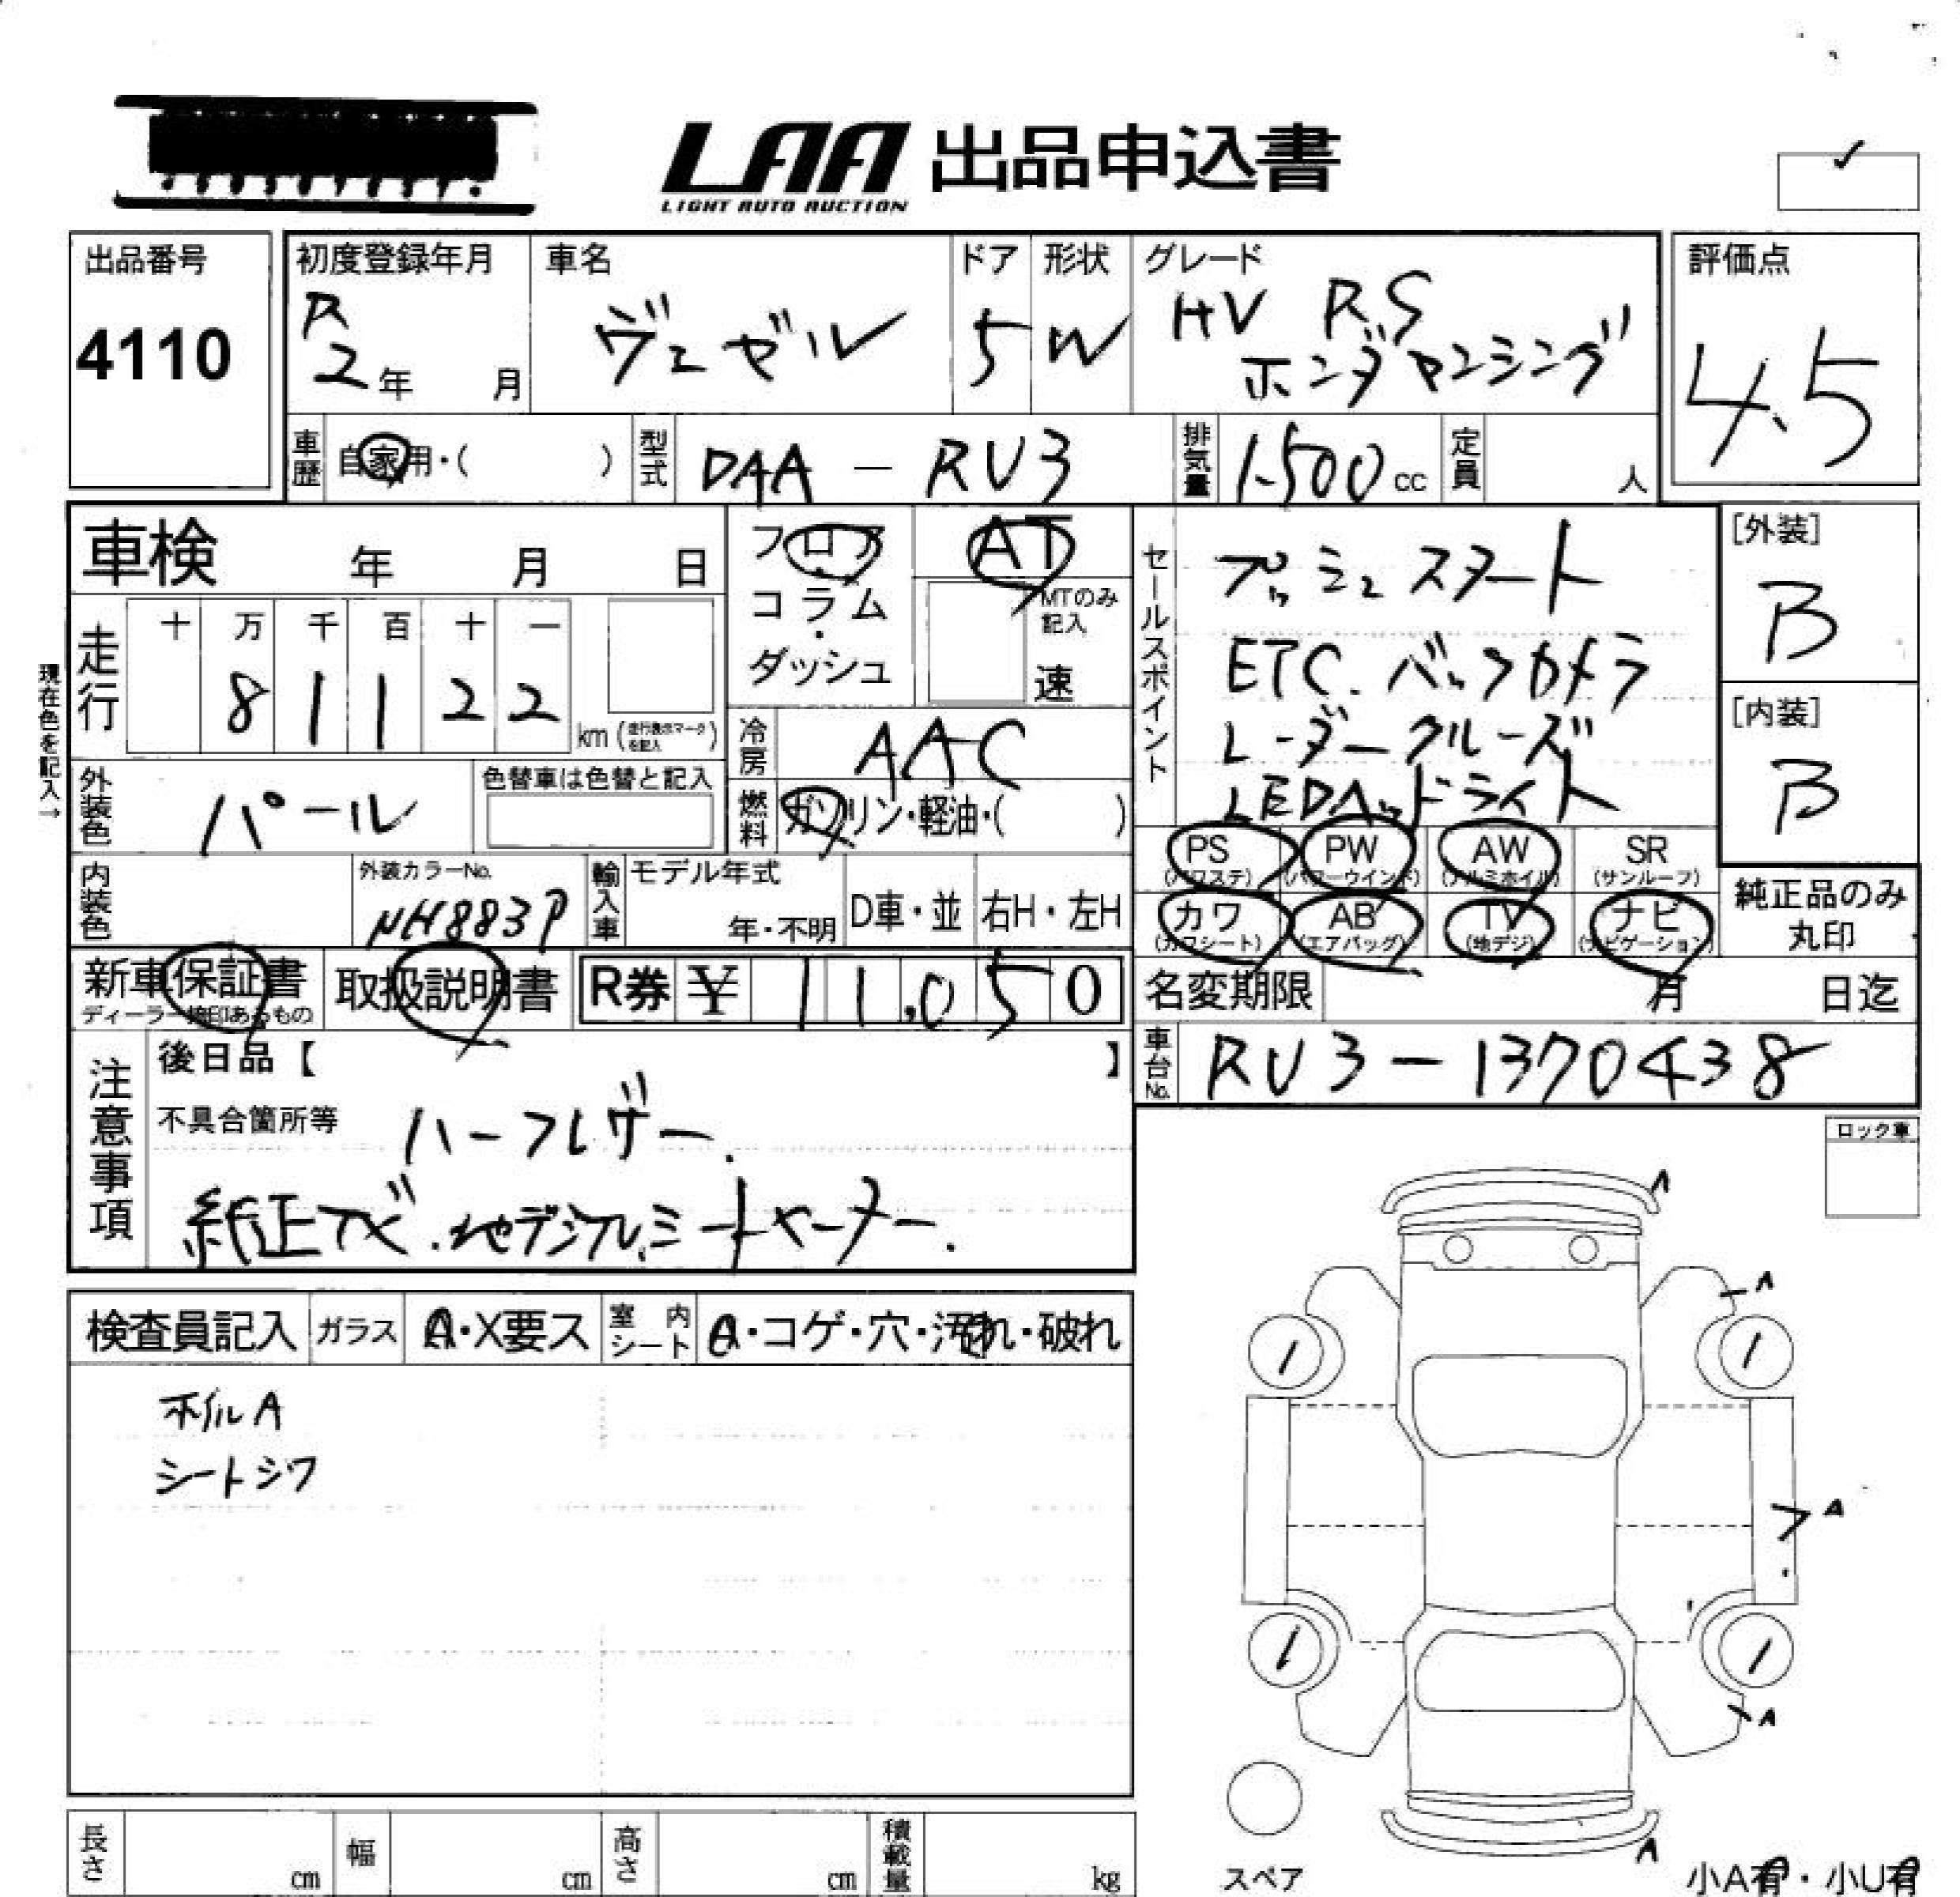 LAA 出品申込書
LIGHT AUTO AUCTION
出品番号
4110
初度登録年月
R
2年 月
車名
ヴェゼル
ドア
5
形状
W
グレード
HV RS
ホンダセンシング
評価点
4.5
車歴
自家用・( )
型式
DAA - RU3
排気量
1500 cc
定員
人
車検 年 月 日
走行
十 万 千 百 十 一
8 1 1 2 2
km (走行表示マークを記入)
現在色を記入→
フロア
・
コラム
・
ダッシュ
AT
MTのみ記入
速
冷房
AAC
燃料
ガソリン・軽油・( )
外装色
パール
色替車は色替と記入
内装色
外装カラーNo.
NH883P
輸入車
モデル年式
年・不明
D車・並
右H・左H
セールスポイント
プッシュスタート
ETC. バックカメラ
レーダークルーズ
LEDヘッドライト
[外装]
B
[内装]
B
PS (パワステ)
PW (パワーウインド)
AW (アルミホイル)
SR (サンルーフ)
カワ (カワシート)
AB (エアバッグ)
TV (地デジ)
ナビ (ナビゲーション)
純正品のみ
丸印
新車保証書
ディーラー捺印あるもの
取扱説明書
R券 ¥ 11,050
名変期限 月 日迄
車台No.
RU3-1370438
注意事項
後日品【 】
不具合箇所等 ハーフレザー.
純正ナビ.地デジTV.シートヒーター.
ロック車
検査員記入
ガラス
A・X要ス
室内シート
A・コゲ・穴・汚れ・破れ
ホイルA
シートシワ
A
A
A
A
A
スペア
小A有・小U有
長さ cm
幅 cm
高さ cm
積載量 kg